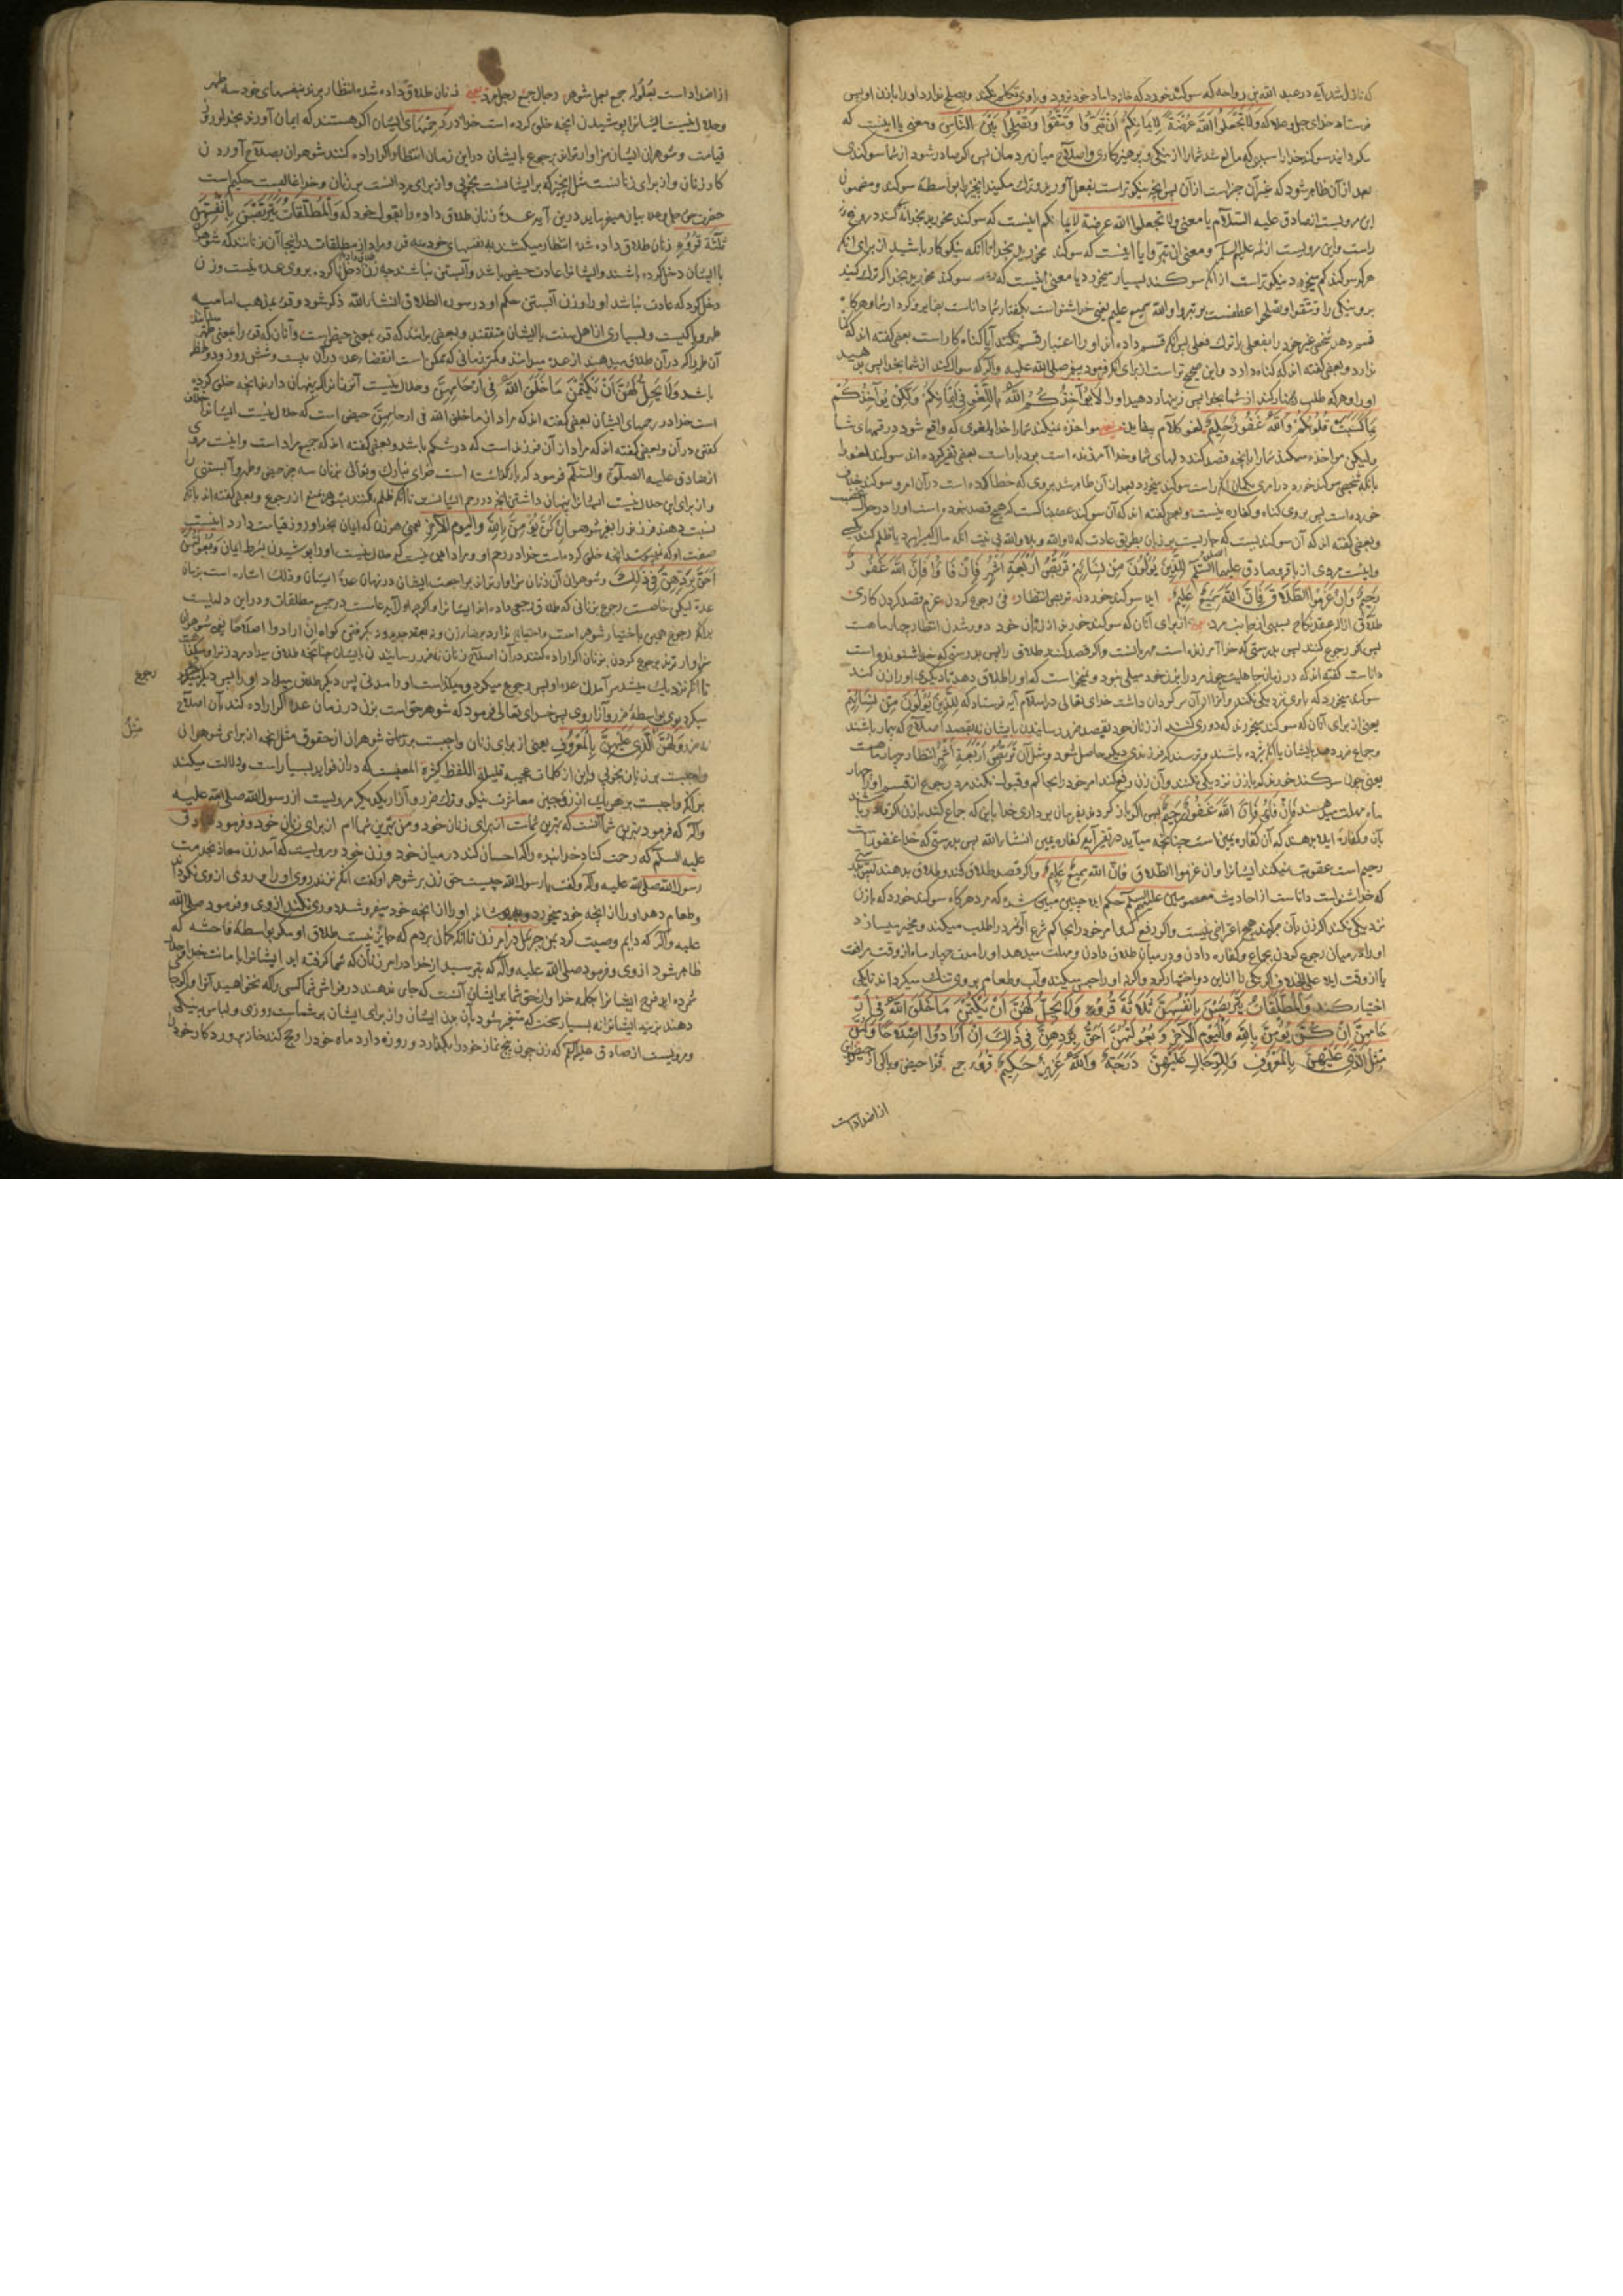 که نازل شد آیه در عبد الله بن رواحه که سوکند خورد که خانه داماد خود نرود و باوی تکلم نکند و بصلح نیارد او را با زن او پس
فرستاد خدای جل و علا که ولا تجعلوا الله عرضة لایمانکم ان تبروا وتتقوا وتصلحوا بین الناس ومعنی یا اینست که
مکردانید سوکند خدا را سببی که مانع شد شما را از نیکی و پرهیزکاری واصلاح میان مردمان پس اکر صادر شود از شما سوکندی
بعد از آن ظاهر شود که غیر آن جز است از آن پس انچه نیکوتر است بفعل آورید و ترک مکنید انچیز را بواسطه سوکند و مضمون
این مرویست از صادق علیه السلام یا معنی ولا تجعلوا الله عرضة لایمانکم اینست که سوکند مخورید بخدا
راست واین مرویست از ائمه علیهم السلم و معنی ان تبروا یا اینست که سوکند مخورید بخدا تا آنکه نیکوکار باشید از برای آنکه
هر که سوکند کم میخورد نیکوتر است از آنکه سوکند بسیار میخورد یا معنی اینست که سوکند مخورید بخدا که ترک کنید
برو نیکی را و تتقوا و تصلحوا عطفست بر تبروا والله سمیع علیم یعنی خدا شنواست بکفتار شما داناست
قسم دهد شخصی غیر خود را بفعلی یا ترک فعلی پس آنکه قسم داده اند او را اعتبار قسم نکند آیا کناه کار است بعضی کفته اند که
ندارد و بعضی کفته اند که کناه دارد و این صحیح تر است از برای آنکه فرمود پیغمبر صلی الله علیه واله که سوال کند از شما بخدا پس بدهید
او را و هر که طلب زنهار کند از شما بخدا پس زینهار دهید او را لا یؤاخذکم الله باللغو فی ایمانکم ولکن یؤاخذکم
بما کسبت قلوبکم والله غفور حلیم لغو کلام بیفایده مواخذه نمیکند شما را خدا بلغوی که واقع شود در قسمهای شما
ولیکن مواخذه میکند شما را بانچه قصد کند دلهای شما و خدا آمرزنده است بردبار است بعضی تفسیر کرده اند سوکند لغو را
بانکه شخصی سوکند خورد در امری بکمان آنکه راست سوکند میخورد بعد از آن ظاهر شد بروی که خطا کرده است در آن امر و سوکند
خورده است پس بروی کناه و کفاره نیست و بعضی کفته اند که آن سوکند غضبناکست که هیچ قصد نبوده است او را در حال غضب
وبعضی کفته اند که آن سوکندیست که جاریست بر زبان بطریق عادت که لا والله و بلا والله بی نیت
واینست مروی از باقر و صادق علیهما السلم للذین یؤلون من نسائهم تربص اربعة اشهر فان فاؤا فان الله غفور
رحیم وان عزموا الطلاق فان الله سمیع علیم ایلا سوکند خوردن تربص انتظار فئ رجوع کردن عزم قصد کردن کاری
طلاق ازاله عقد نکاح بسببی از جانب مرد از برای آنان که سوکند خورند از زنان خود دور شدن انتظار چهار ماهست
پس اکر رجوع کنند پس بدرستی که خدا آمرزنده است مهربانست واکر قصد کنند طلاق را پس بدرستی که خدا شنونده است
داناست کفته اند که در زمان جاهلیت چون مرد را بزن خود میلی نبود و نمیخواست که او را طلاق دهد تا دیکری او را زن کند
سوکند میخورد که باوی نزدیکی نکند و آنرا از آن سرکردان داشت خدای تعالی در اسلام آیه فرستاد که للذین یؤلون من نسائهم
یعنی از برای آنان که سوکند میخورند که دوری کنند از زنان خود بقصد ضرر رسانیدن بایشان نه بقصد اصلاح که بیمار باشند
وجماع ضرر دهد بایشان یا آنکه باشند وترسند که فرزندی دیکر حاصل شود ومثل آن تربص اربعة اشهر انتظار چهار ماهست
یعنی چون سوکند خورند که با زن نزدیکی نکنند وآن زن رفع کند امر خود را بحاکم و قبول نکند مرد رجوع از قسم او را چهار
ماه مهلت میدهند فان فاؤ فان الله غفور رحیم پس اکر باز کردند بفرمان برداری خدا باین که جماع کنند با زن اکر قادر باشند
بآن وکفاره ایلا بدهند که آن کفاره یمین است چنانچه میآید در تفسیر آیه کفاره یمین انشاء الله پس بدرستی که خدا غفور است
رحیم است عقوبت نمیکند ایشانرا وان عزموا الطلاق فان الله سمیع علیم واکر قصد طلاق کند وطلاق بدهند
که خدا شنواست داناست از احادیث معصومین علیهم السلم حکم ایلا چنین مبین شده که مرد هر کاه سوکند خورد که با زن
نزدیکی نکند اکر زن بآن صبر کند هیچ اعتراضی نیست واکر رفع کند امر خود را بحاکم شرع آنمرد را طلب میکند ومخیر میسازد
او را در میان رجوع کردن بجماع وکفاره دادن ودر میان طلاق دادن ومهلت میدهد او را مدت چهار ماه از وقت مرافعت
یا از وقت ایلا علی الخلاف اکر یکی را از این دو اختیار کرد والا او را حبس میکند وآب وطعام بروی تنک میکرداند تا یکی
اختیار کند والمطلقات یتربصن بانفسهن ثلاثة قروء ولا یحل لهن ان یکتمن ما خلق الله فی ار
حامهن ان کن یؤمن بالله والیوم الآخر وبعولتهن احق بردهن فی ذلک ان ارادوا اصلاحا ولهن
مثل الذی علیهن بالمعروف وللرجال علیهن درجة والله عزیز حکیم قروء جمع قرء حیض و پاکی از حیض
از اضداد است
از اضداد است بعولة جمع بعل شوهر رجال جمع رجل مرد زنان طلاق داده شده انتظار برند بنفسهای خود سه طهر
وحلال نیست ایشانرا پوشیدن انچه خلق کرده است خدا در رحمهای ایشان اکر هستند که ایمان آورند بخدا و روز
قیامت وشوهران ایشان سزاوارترند برجوع بایشان در این زمان انتظار اکر اراده کنند شوهران بصلاح آوردن
کار زنان واز برای زنانست مثل انچیز که بر ایشانست بخوبی واز برای مردانست بر زنان وخدا غالبست حکیم است
حضرت حق جل وعلا بیان میفرماید در این آیه عدة زنان طلاق داده را بقول خود که والمطلقات یتربصن بانفسهن
ثلثة قروء زنان طلاق داده شده انتظار میکشند بنفسهای خود سه قرء ومراد از مطلقات در اینجا آن زنانند که شوهر
با ایشان دخل کرده باشند وایشانرا عادت حیض باشد وآبستن نباشند چه زن دخل ناکرده بروی عده نیست وزن
دخل کرده که عادت نباشد او را وزن آبستن حکم او در سورة الطلاق انشاء الله ذکر شود وقرء بمذهب امامیه
طهر و پاکیست وبسیاری از اهل سنت بایشان متفقند وبعضی برانند که قرء بمعنی حیض است وآنان که قرء را بمعنی طهر
آن طهر را که در آن طلاق میدهند از عده میدانند وکمتر زمانی که ممکن است انقضاء عده در آن بیست وشش روز و دو لحظه
باشد ولا یحل لهن ان یکتمن ما خلق الله فی ارحامهن وحلال نیست آنزنانرا که پنهان دارند انچه خلق کرده
است خدا در رحمهای ایشان بعضی کفته اند که مراد از ما خلق الله فی ارحامهن حیض است که حلال نیست ایشانرا خلاف
کفتن در آن وبعضی کفته اند که مراد از آن فرزند است که در شکم باشد وبعضی کفته اند که جمیع مراد است واینست مروی
از صادق علیه الصلوة والسلام فرمود که باز کذاشته است خدای تبارک وتعالی بزنان سه چیز حیض وطهر وآبستنی را
واز برای این حلال نیست ایشانرا پنهان داشتن انچه در رحم ایشانست تا آنکه ظلم نکنند بشوهر بمنع از رجوع وبعضی کفته اند بآنکه
نسبت دهند فرزند را بغیر شوهر ان کن یؤمن بالله والیوم الآخر یعنی هر زن که ایمان بخدا و روز قیامت دارد اینست
صفت او که نمیپوشد انچه خلق کرده است خدا در رحم او و مراد این نیست که حلال نیست او را پوشیدن بشرط ایمان وبعولتهن
احق بردهن فی ذلک وشوهران آن زنان سزاوارترند بمراجعت ایشان در زمان عدة ایشان وذلک اشاره است بزمان
عدة لیکن خاصست رجوع بزنانی که طلاق رجعی داده اند ایشانرا واکرچه اول آیه عامست در جمیع مطلقات ودر این دلیلست
برآنکه رجوع همین باختیار شوهر است واحتیاج ندارد برضاء زن ونه بعقد جدید ونه بکرفتن کواه ان ارادوا اصلاحا یعنی شوهران
سزاوارترند برجوع کردن بزنان اکر اراده کنند در آن اصلاح زنان نه ضرر رسانیدن بایشان چنانچه طلاق میداد مرد زنرا ومیکذاشت
تا آنکه نزدیک میشد بسر آمدن عدة او پس رجوع میکرد و میکذاشت او را مدتی پس دیکر طلاق میداد او را پس دیکر رجوع
رجوع
میکرد بوی بواسطه ضرر وآزار وی پس خدای تعالی فرمود که شوهر حق است بزن در زمان عده اکر اراده کند بآن اصلاح
نه ضرر ولهن مثل الذی علیهن بالمعروف یعنی از برای زنان واجبست بر شوهران از حقوق مثل انچه از برای شوهران
مثل
واجبست بر زنان بخوبی واین از کلمات عجیبه قلیلة اللفظ کثیرة المعنیست که در آن فواید بسیار است ودلالت میکند
برآنکه واجبست بر هر یک از زوجین معاشرت نیکو وترک ضرر وآزار یکدیکر مرویست از رسول الله صلی الله علیه
واله که فرمود بهترین شما آنست که بهترین شماست از برای زنان خود ومن بهترین شماام از برای زنان خود وفرمود صادق
علیه السلم که رحمت کناد خدا بنده را که احسان کند در میان خود و زن خود ومرویست که آمد زن معاذ بخدمت
رسول الله صلی الله علیه واله وکفت یا رسول الله چیست حق زن بر شوهر او کفت آنکه نزند روی او را و روی از وی نکرداند
وطعام دهد او را از انچه خود میخورد وبپوشاند او را از انچه خود میپوشد ودوری نکند از وی وفرمود صلی الله
علیه واله که دایم وصیت کرد بمن جبرئیل در امر زن تا آنکه کمان بردم که جایز نیست طلاق او مکر بواسطه فاحشه که
ظاهر شود از وی وفرمود صلی الله علیه واله که بترسید از خدا در امر زنان که شما کرفته اید ایشانرا بامانت خدا وحلال
کرده اید فرج ایشانرا بکلمه خدا وازحق شما بر ایشان آنست که جای ندهند در فراش شما کسی را که نخواهید آنرا
دهند بزنید ایشانرا نه بسیار سخت که متغیر شود بآن بدن ایشان واز برای ایشان بر شماست روزی ولباس به نیکی
ومرویست از صادق علیه السلم که زن چون پنج نماز خود را بکذارد و روزه دارد ماه خود را و حج کند خانه پروردکار خود را